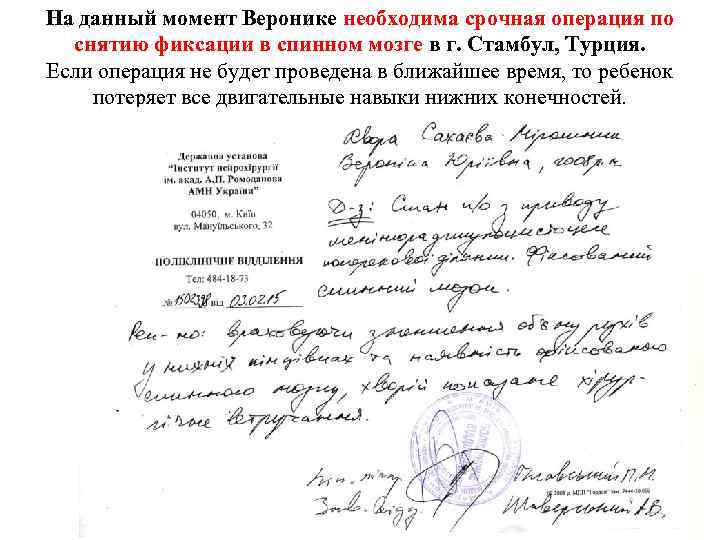 На данный момент Веронике необходима срочная операция по
снятию фиксации в спинном мозге в г. Стамбул, Турция.
Если операция не будет проведена в ближайшее время, то ребенок
потеряет все двигательные навыки нижних конечностей.
Державна установа
"Інститут нейрохірургії
ім. акад. А.П. Ромоданова
АМН України"
04050, м. Київ
вул. Мануїльського, 32
ПОЛІКЛІНІЧНЕ ВІДДІЛЕННЯ
Тел: 484-18-73
№ від 03.02.15
Хвора Сахаєва-Мірошник
Вероніка Юріївна, 2008 р.н.
Д-з: Стан п/о з приводу
менінгорадикулоцистоцеле
поперекової ділянки. Фіксований
спинний мозок.
Рек-но: враховуючи зменшення об'єму рухів
у нижніх кінцівках та наявність фіксованого
спинного мозку, хворій показане хірур-
гічне втручання.